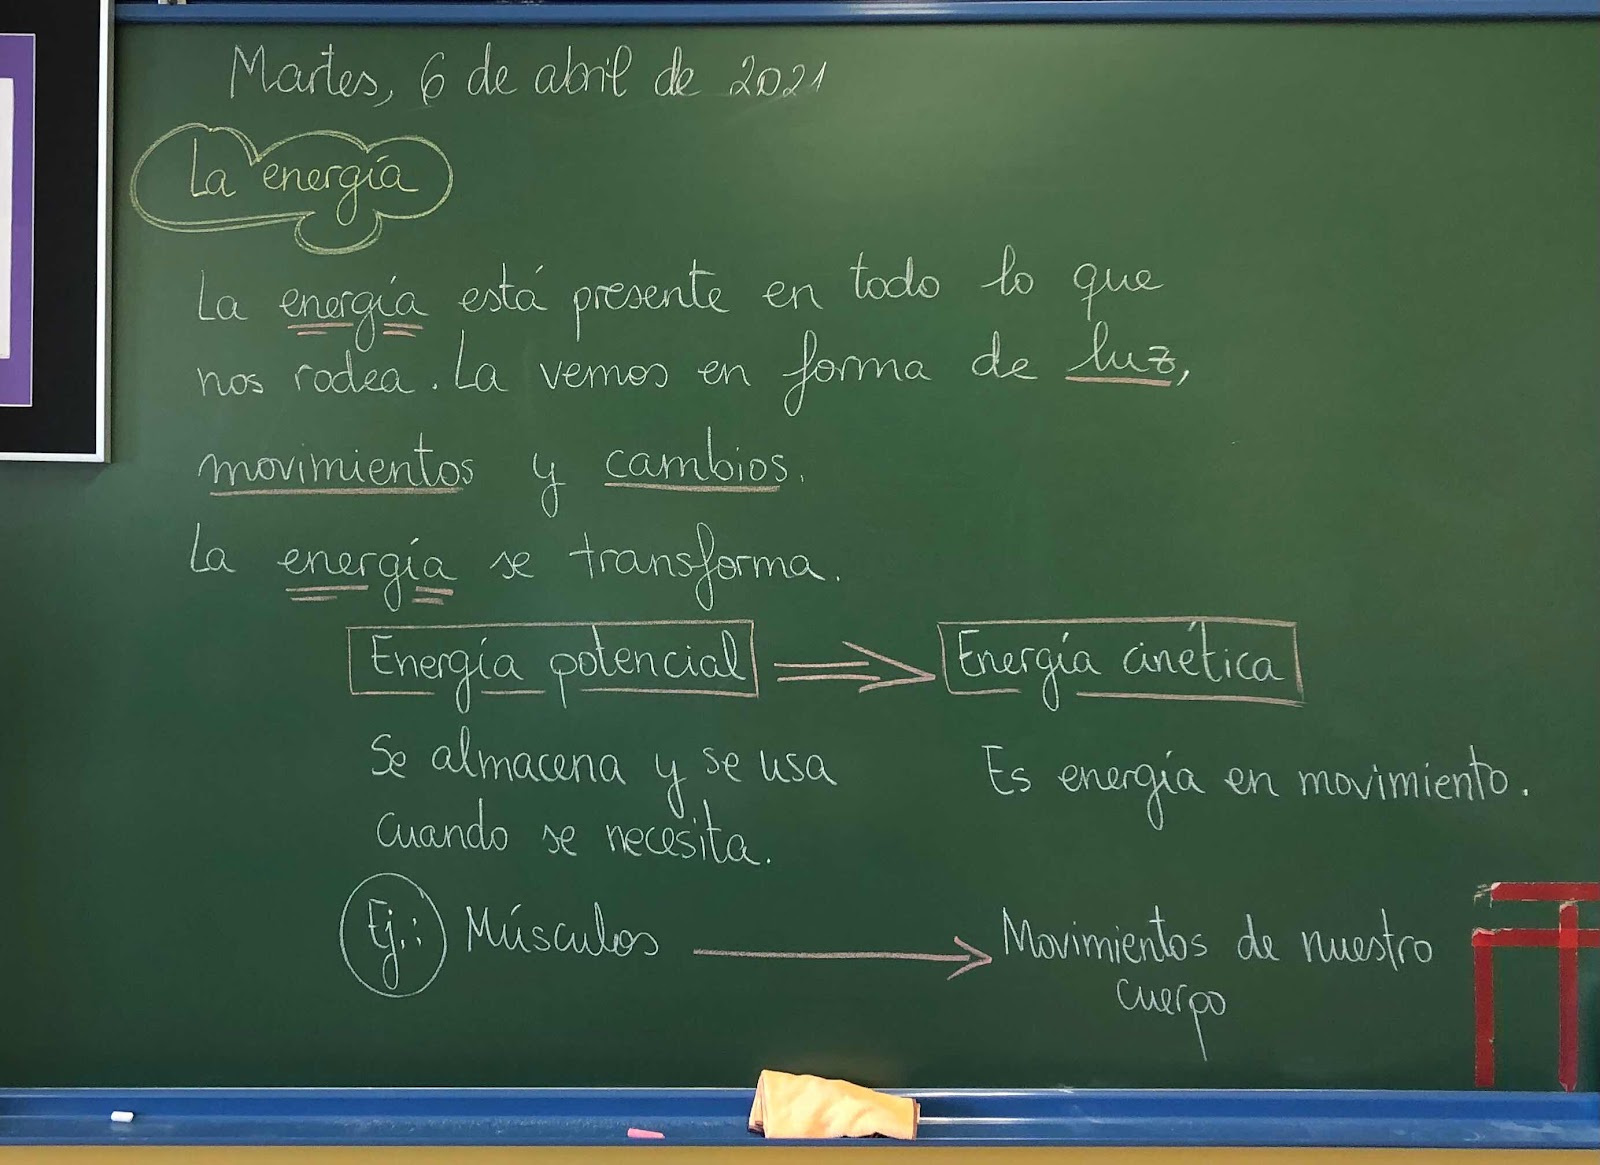 Martes, 6 de abril de 2021
La energía
La energía está presente en todo lo que
nos rodea. La vemos en forma de luz,
movimientos y cambios.
La energía se transforma.
Energía potencial ⇒ Energía cinética
Se almacena y se usa
cuando se necesita.
Es energía en movimiento.
Ej.: Músculos → Movimientos de nuestro
cuerpo